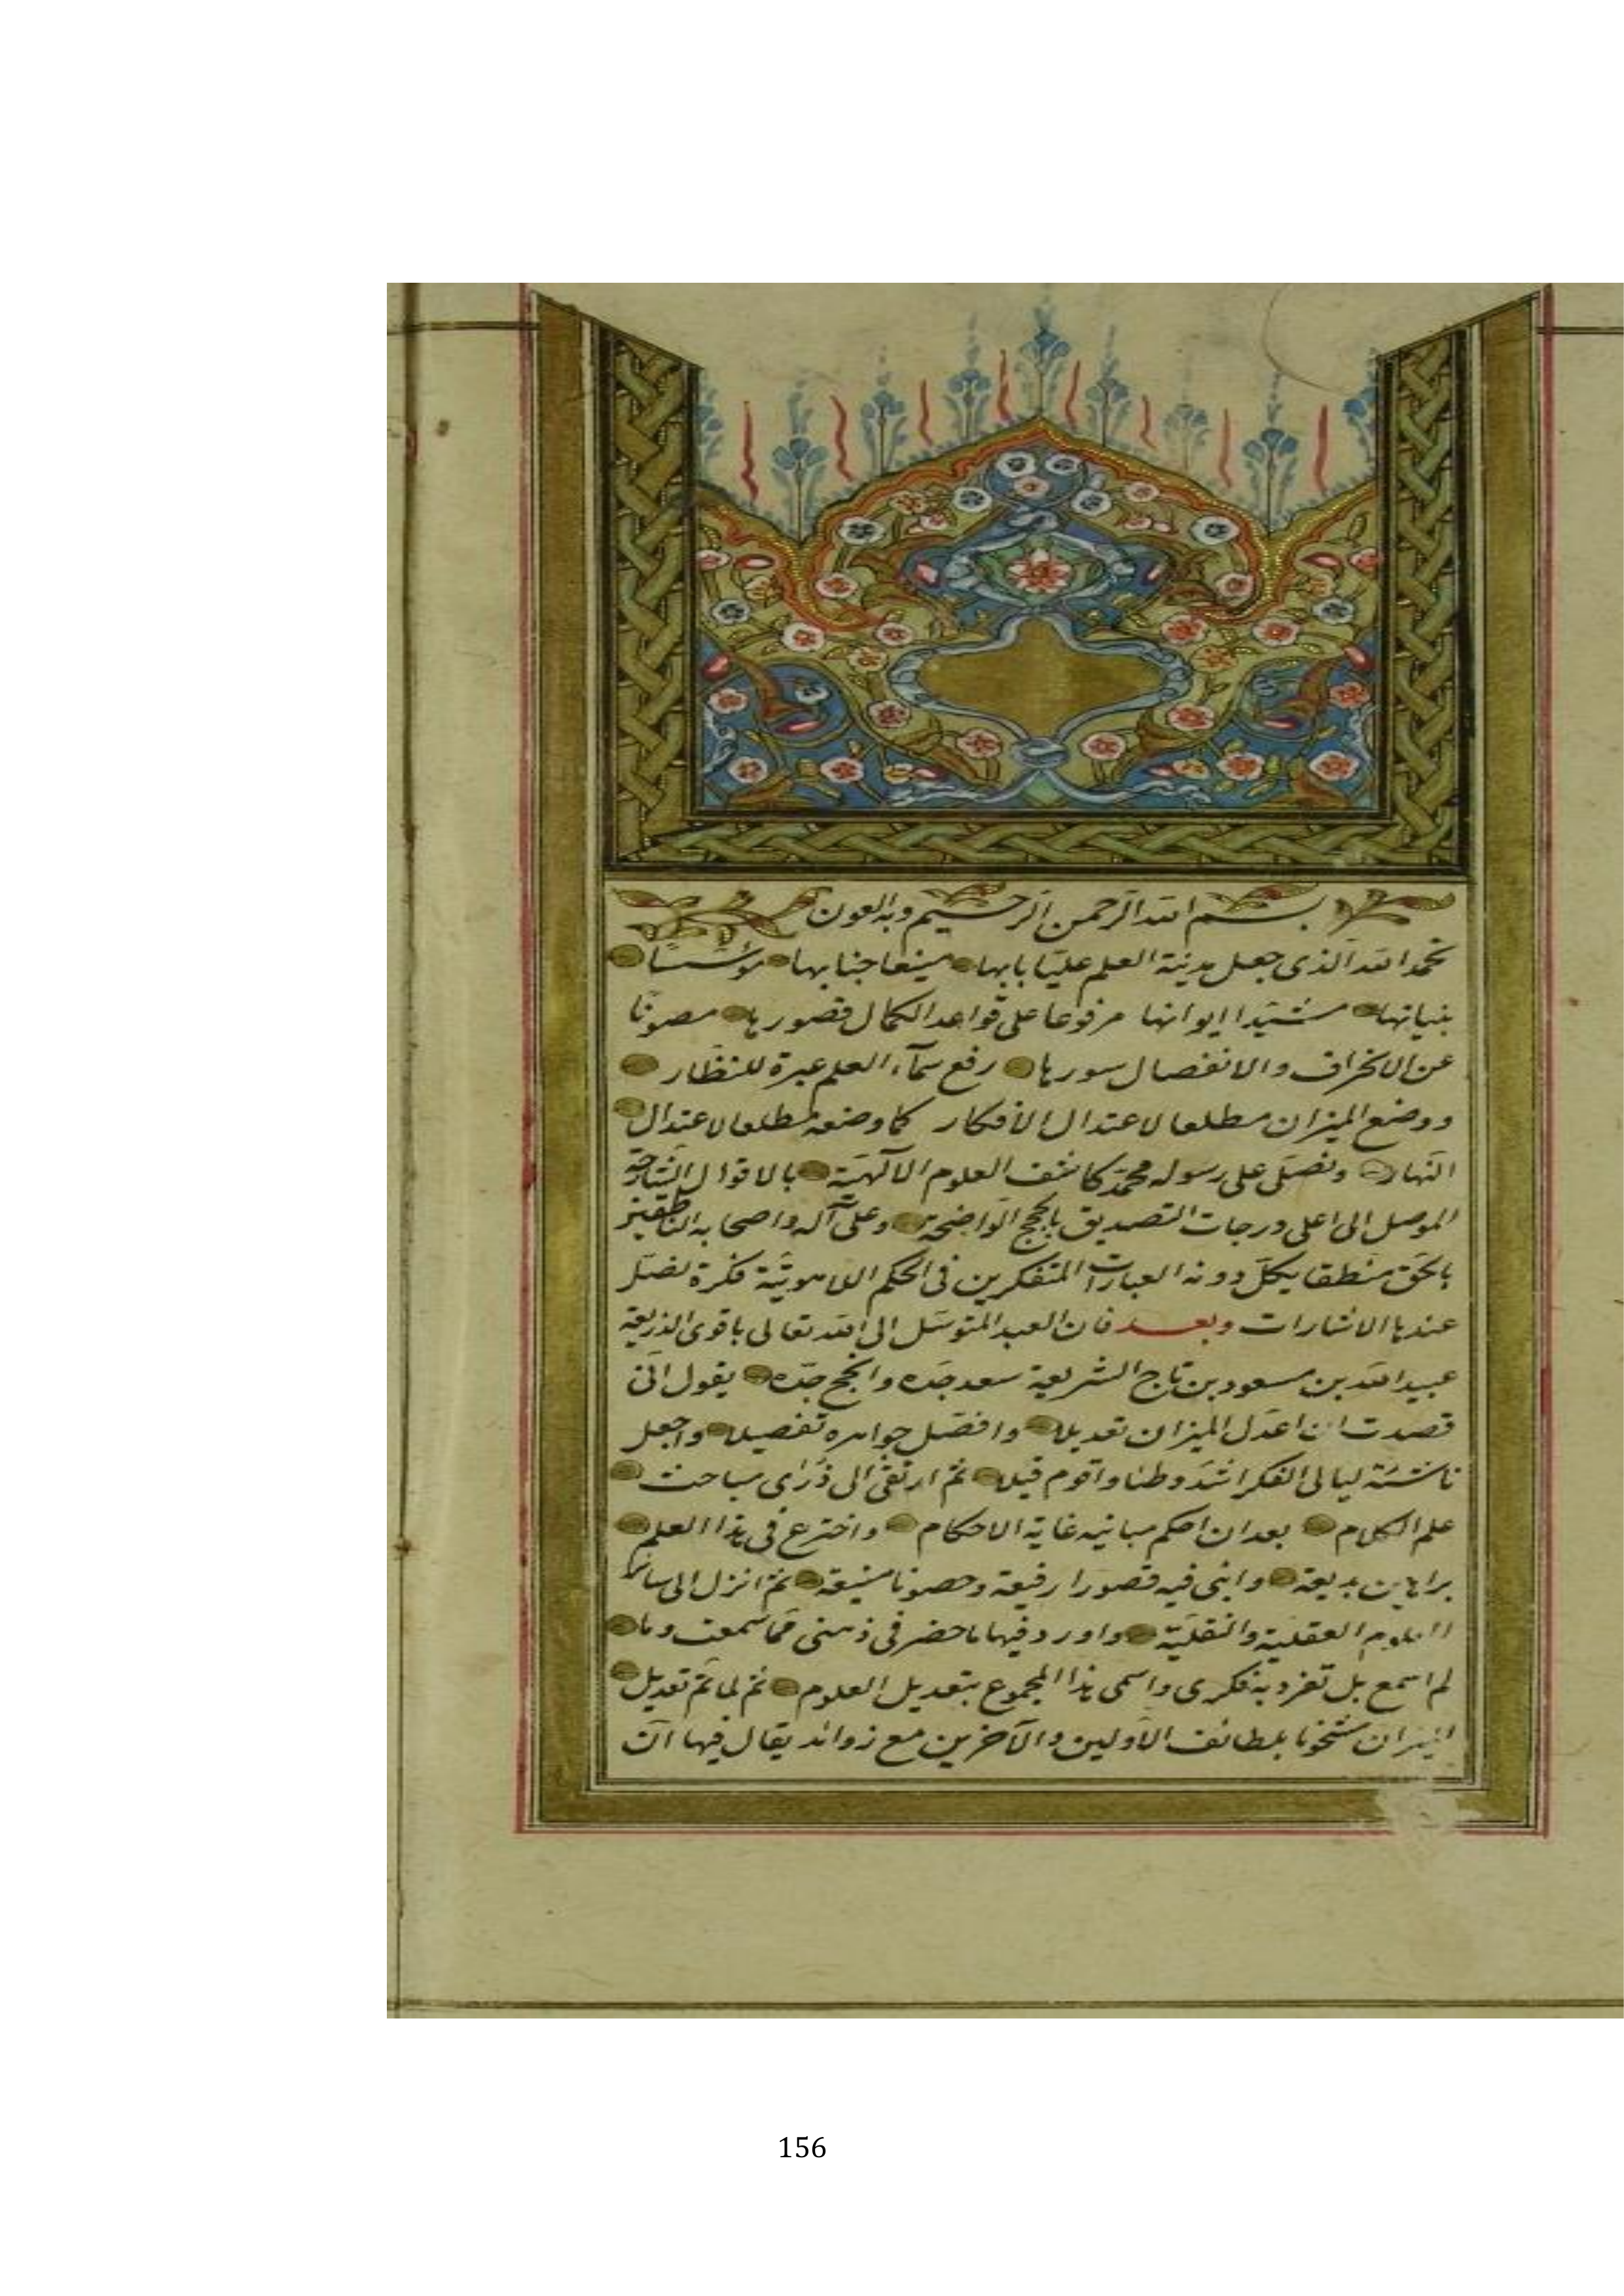 بسم الله الرحمن الرحيم وبه العون
نحمد الله الذى جعل مدينة العلم عليّا بابها منيعا جنابها مؤسّسا
بنيانها مشيّدا ايوانها مرفوعا على قواعد الكمال قصورها مصونًا
عن الانخراف والانفصال سورها رفع سمآء العلم عبرة للنظّار
ووضع الميزان مطلعا لاعتدال الأفكار كما وضعه مطلعا لاعتدال
النّهار ونصلّى على رسوله محمّد كاشف العلوم الآلهيّة بالاقوال الشّارحة
الموصل الى اعلى درجات التصديق بالحجج الواضحة وعلى آله واصحابه الناطقين
بالحقّ منطقا يكلّ دونه العبارات المتفكرين فى الحكم اللاهوتيّة فكرة تضلّ
عندها الاشارات وبعد فان العبد المتوسّل الى الله تعالى باقوى الذريعة
عبيد الله بن مسعود بن تاج الشريعة سعد جدّه وانجح جدّه يقول انّى
قصدت ان اعدل الميزان تعديلا وافصّل جواهره تفصيلا واجعل
ناشئة ليالى الفكر اشدّ وطئا واقوم قيلا ثمّ ارتقى الى ذُرَاى مباحث
علم الكلام بعد ان احكم مبانيه غاية الاحكام واخترع فى هذا العلم
براهين بديعة وابنى فيه قصورا رفيعة وحصونا منيعة ثمّ انزل الى سائر
العلوم العقليّة والنقليّة واورد فيها ما حضر فى ذهنى ممّا سمعت وما
لم اسمع بل تفرد به فكرى واسمى هذا المجموع بتعديل العلوم ثمّ لما تمّ تعديل
الميزان مشحونا بلطائف الأولين والآخرين مع زوائد يقال فيها ان
156